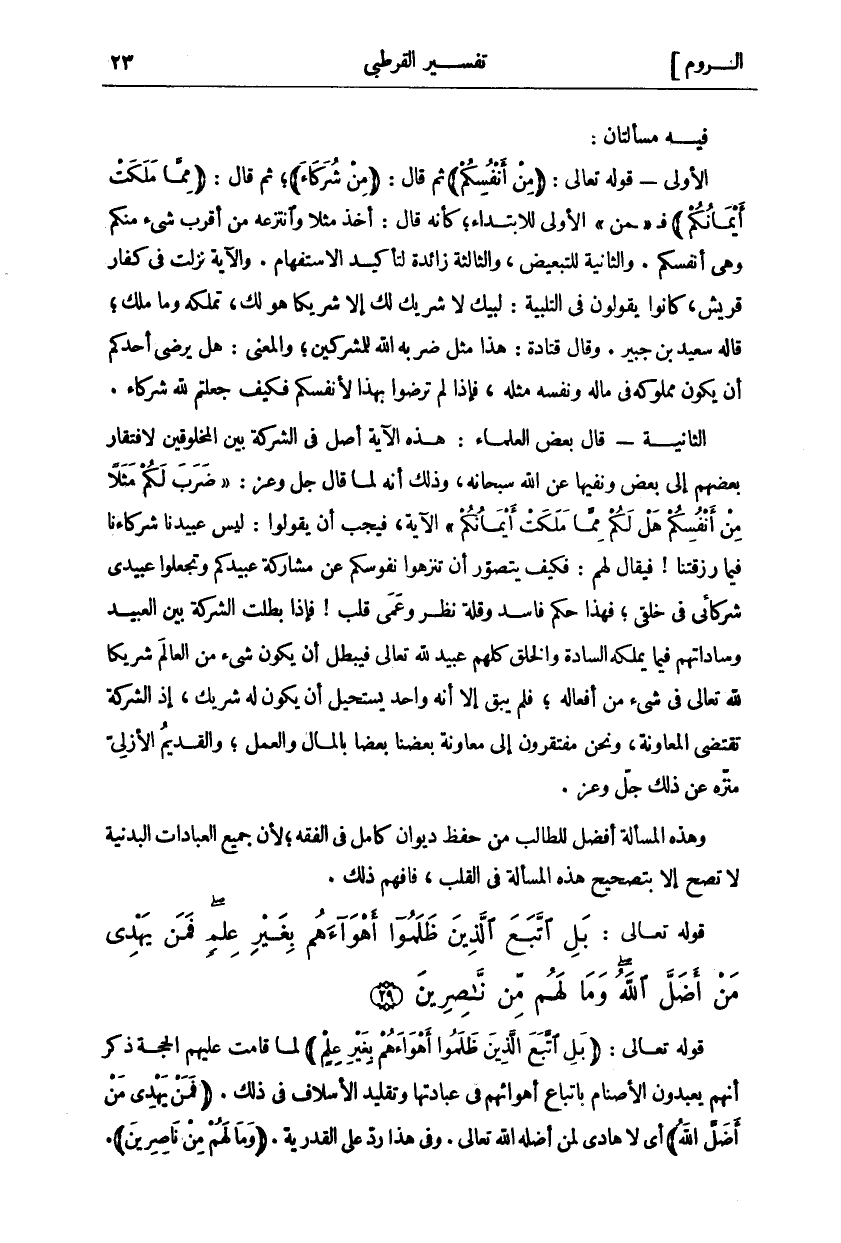 الـــروم ] تفســـير القرطبي ٢٣
فيـــه مسألتان :
الأولى — قوله تعالى : (مِنْ أَنْفُسِكُمْ) ثم قال : (مِنْ شُرَكَاءَ)؛ ثم قال : (مِمَّا مَلَكَتْ
أَيْمَانُكُمْ) فـ «ـمن» الأولى للابتـداء؛ كأنه قال : أخذ مثلا وٱنتزعه من أقرب شىء منكم
وهى أنفسكم . والثانية للتبعيض ، والثالثة زائدة لتأكيـد الاستفهام . والآية نزلت فى كفار
قريش، كانوا يقولون فى التلبية : لبيك لا شريك لك إلا شريكا هو لك، تملكه وما ملك ؛
قاله سعيد بن جبير . وقال قتادة : هذا مثل ضربه الله للمشركين؛ والمعنى : هل يرضى أحدكم
أن يكون مملوكه فى ماله ونفسه مثله ، فإذا لم ترضوا بهذا لأنفسكم فكيف جعلتم لله شركاء .
الثانيـــة — قال بعض العلمـاء : هـذه الآية أصل فى الشركة بين المخلوقين لافتقار
بعضهم إلى بعض ونفيها عن الله سبحانه، وذلك أنه لمـا قال جل وعز : « ضَرَبَ لَكُمْ مَثَلًا
مِنْ أَنْفُسِكُمْ هَلْ لَكُمْ مِمَّـا مَلَكَتْ أَيْمَـانُكُمْ » الآية، فيجب أن يقولوا : ليس عبيدنا شركاءنا
فيما رزقتنا ! فيقال لهم : فكيف يتصوّر أن تنزهوا نفوسكم عن مشاركة عبيدكم وتجعلوا عبيدى
شركائى فى خلقى ؛ فهذا حكم فاسـد وقلة نظـر وعَمَى قلب ! فإذا بطلت الشركة بين العبيـد
وساداتهم فيما يملكه السادة والخلق كلهم عبيد لله تعالى فيبطل أن يكون شىء من العالَم شريكا
لله تعالى فى شىء من أفعاله ؛ فلم يبق إلا أنه واحد يستحيل أن يكون له شريك ، إذ الشركة
تقتضى المعاونة، ونحن مفتقرون إلى معاونة بعضنا بعضا بالمـال والعمل ؛ والقـديمُ الأزلىّ
منزّه عن ذلك جلّ وعز .
وهذه المسألة أفضل للطالب من حفظ ديوان كامل فى الفقه؛ لأن جميع العبادات البدنية
لا تصح إلا بتصحيح هذه المسألة فى القلب ، فافهم ذلك .
قوله تعـالى : بَلِ ٱتَّبَعَ ٱلَّذِينَ ظَلَمُوٓا أَهْوَآءَهُم بِغَيْرِ عِلْمٍۖ فَمَن يَهْدِى
مَنْ أَضَلَّ ٱللَّهُۖ وَمَا لَهُم مِّن نَّـٰصِرِينَ ﴿٢٩﴾
قوله تعـالى : (بَلِ ٱتَّبَعَ الَّذِينَ ظَلَمُوا أَهْوَاءَهُمْ بِغَيْرِ عِلْمٍ) لمـا قامت عليهم الحجـة ذكر
أنهم يعبدون الأصنام باتباع أهوائهم فى عبادتها وتقليد الأسلاف فى ذلك . (فَمَنْ يَهْدِى مَنْ
أَضَلَّ اللهُ) أى لا هادى لمن أضله الله تعالى . وفى هذا ردّ على القدرية . (وَمَا لَهُمْ مِنْ نَاصِرِينَ).